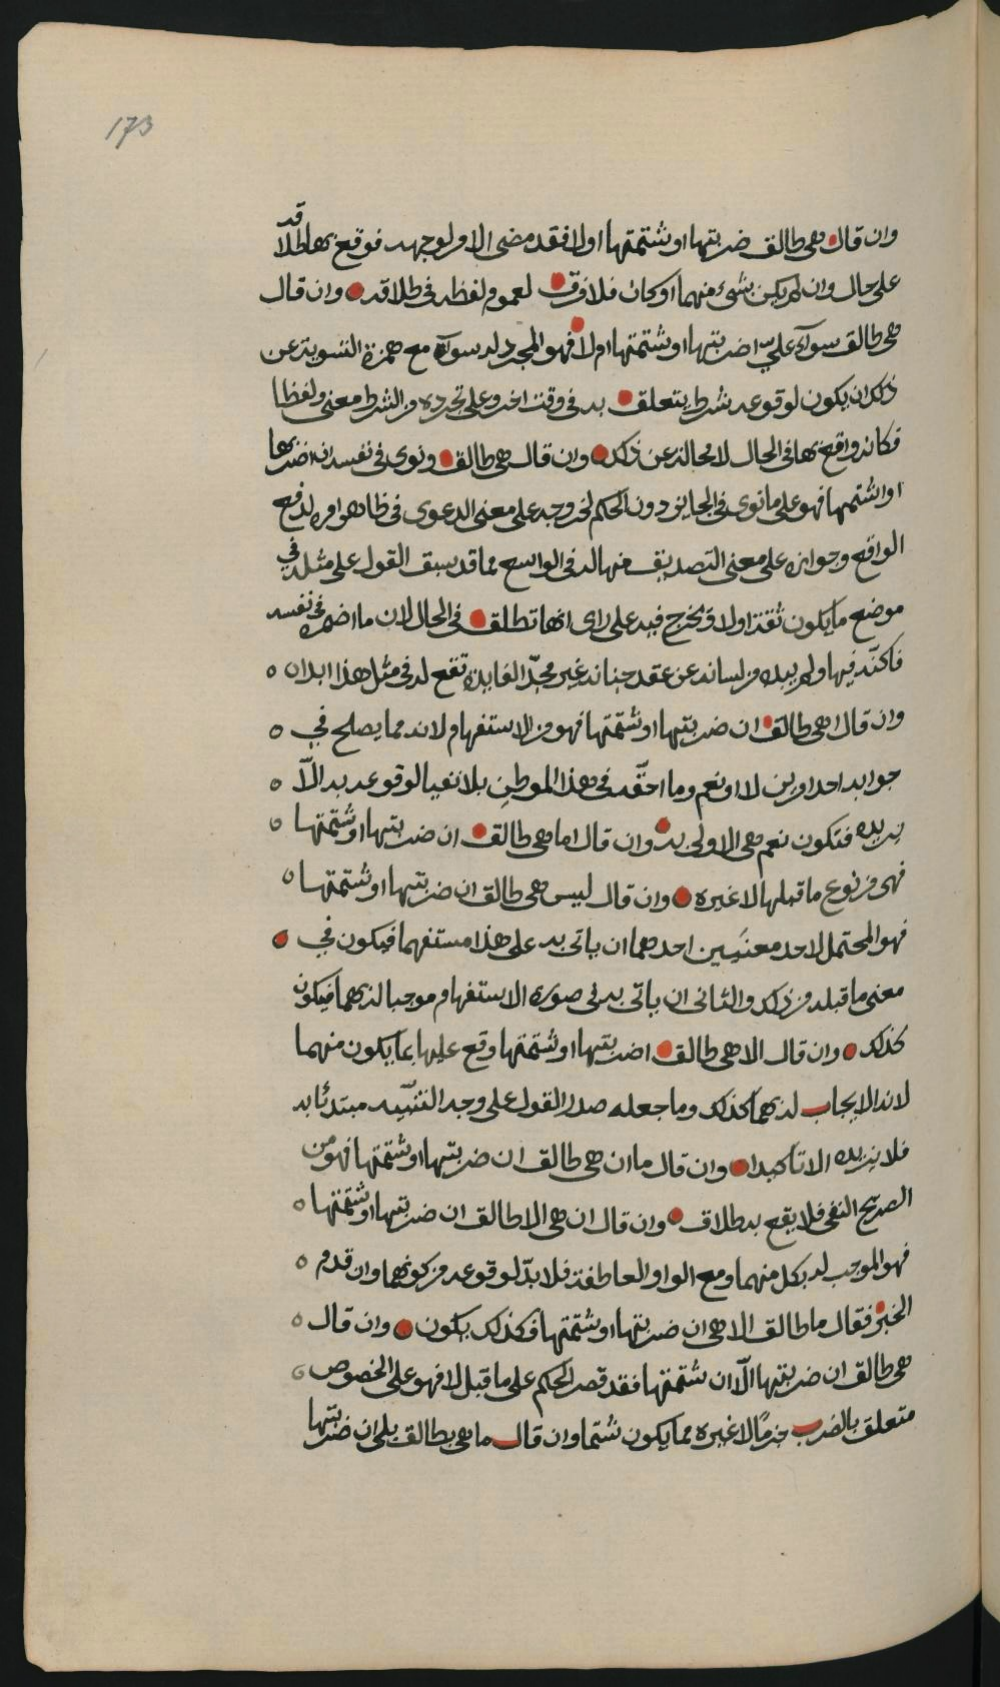 173
وان قال هي طالق ضربتها او شتمتها او لا فقد مضى الامر لوجهه فوقع بها طلاقه
على حال وان لم يكن بشيء منهما او كان فلا فرق لعموم لفظه في طلاقه وان قال
هي طالق سواء عليّ اضربتها او شتمتها ام لا فهو المجرد له سواء مع همزة التسوية عن
ذلك ان يكون لوقوعه شرط يتعلق به في وقت اخر وعلى تجرده من الشرط معنى ولفظا
فكانه واقع بها في الحال لا محالة عن ذلك وان قال هي طالق ونوى في نفسه ان اضربها
او اشتمها فهو على ما نوى في الجايز دون الحكم لخروجه على معنى الدعوى في ظاهر امره لدفع
الواقع وجوازه على معنى التصديق منها له في الواسع مما قد سبق القول على مثله في
موضع ما يكون ثقة اولا ويخرج فيه على راى انها تطلق في الحال لان ما اضمره في نفسه
فاكنّه فيها ولم يبده من لسانه عن عقد جنانه غير مجدّ لفايدة تقع له في مثل هذا ابدا ن
وان قال اهي طالق ان ضربتها او شتمتها فهو من الاستفهام لانه مما يصلح في
جوابه احد امرين لا او نعم وما احقّه في هذا الموطن بلا نفيا لوقوعه به الاّ
يريده فتكون نعم هي الاولى به وان قال اما هي طالق ان ضربتها او شتمتها
فهي من نوع ما قبلها لا غيره وان قال ليس هي طالق ان ضربتها او شتمتها
فهو المحتمل لاحد معنيين احدهما ان ياتي به على هذا مستفهما فيكون في
معنى ما قبله من ذلك والثاني ان ياتي به في صورة الاستفهام موجبا له بهما فيكون
كذلك وان قال الا هي طالق اضربتها او شتمتها وقع عليها بما يكون منهما
لانه الايجاب له بهما كذلك وما جعله صدر القول على وجه التنبيه مبتدئا به
فلا يزيده الا تاكيدا وان قال ما ان هي طالق ان ضربتها او شتمتها فهو من
الصريح النفي فلا يقع به طلاق وان قال ان هي الا طالق ان ضربتها او شتمتها
فهو الموجب له بكل منهما ومع الواو العاطفة فلا بدّ لوقوعه من كونهما وان قدم
الخبر فقال ما طالق الا هي ان ضربتها او شتمتها فكذلك يكون وان قال
هي طالق ان ضربتها الاّ ان شتمتها فقد قصر الحكم على ما قبل لا فهو على الخصوص
متعلق بالضرب جزمًا لا غيره مما يكون شتما وان قال ما هي بطالق بلى ان ضربتها